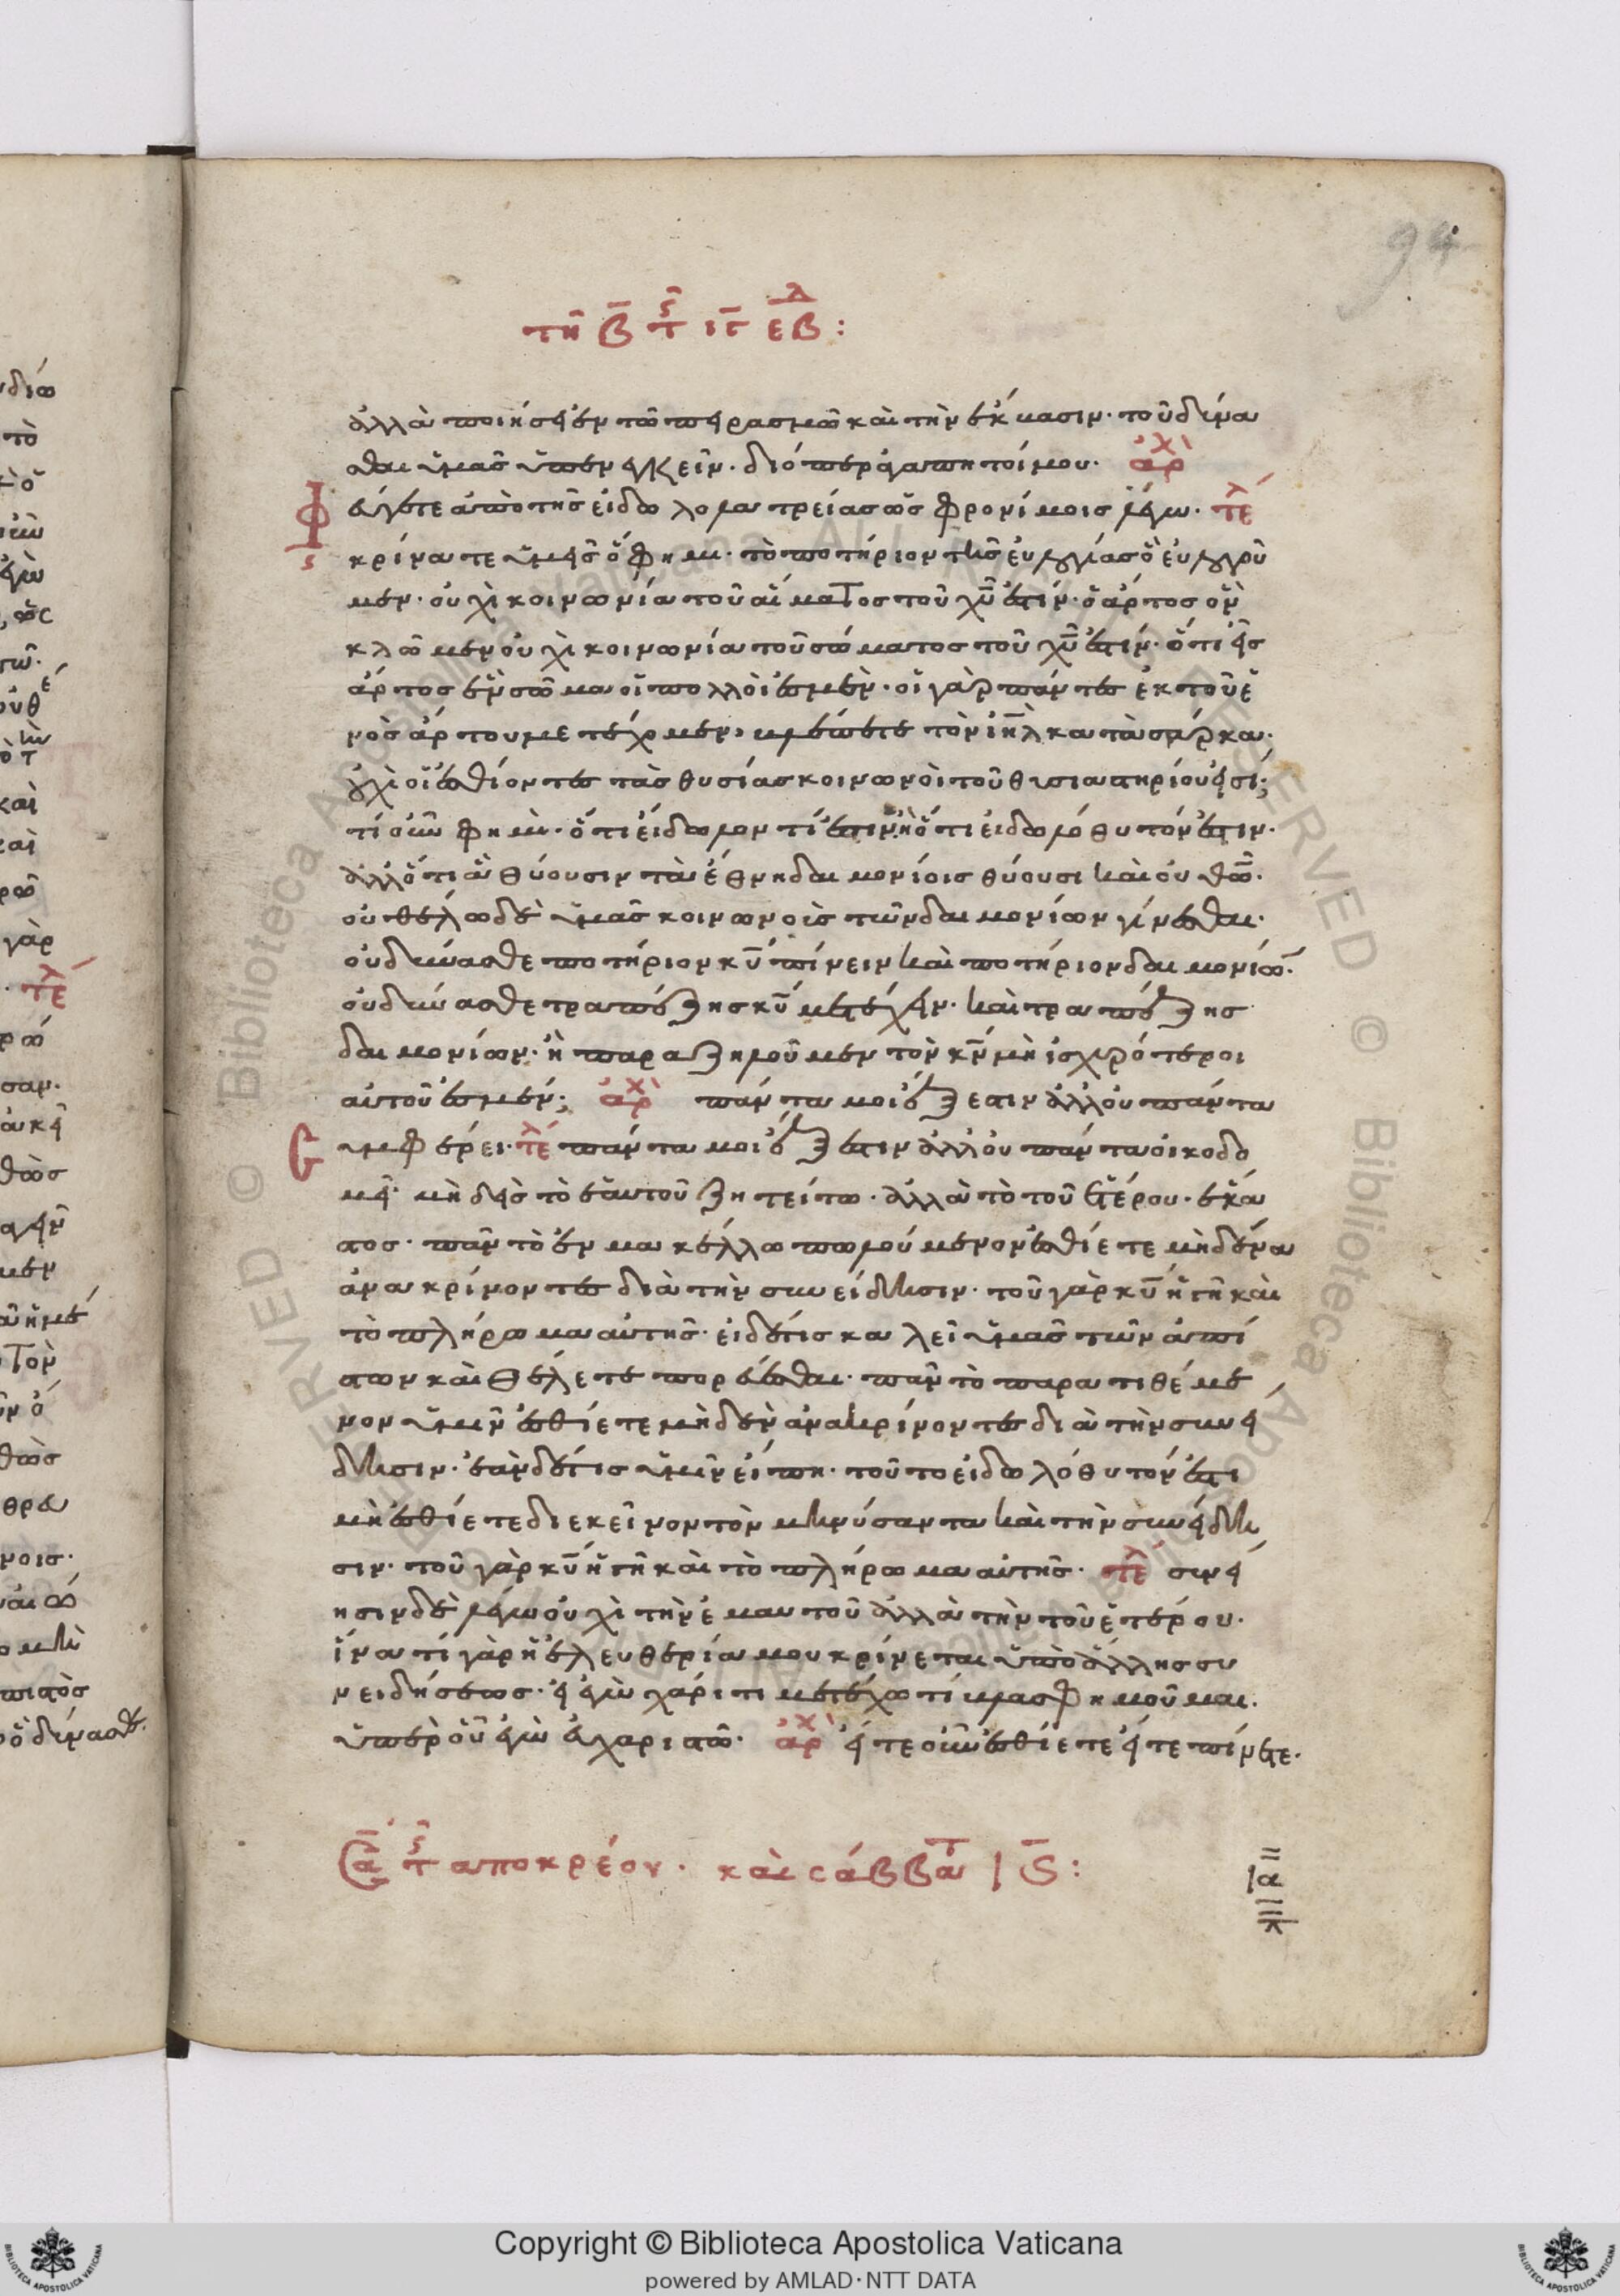 94
τῆ β̄ τ ιγ̄ εβ :
ἀλλὰ ποιήσει σὺν τῶ πειρασμῶ καὶ τὴν ἔκβασιν· τοῦ δύνα
σθαι ὑμᾶς ὑπενεγκεῖν. διόπερ ἀγαπητοί μου. ἀρχ
Φεύγετε ἀπὸ τῆς εἰδωλολατρείας ὡς φρονίμοις λέγω. τέλ
κρίνατε ὑμεῖς ὅ φημι· τὸ ποτήριον τῆς εὐλογίας ὃ εὐλογοῦ
μεν· οὐχὶ κοινωνία τοῦ αἵματος τοῦ χῦ ἐστίν· ὁ ἄρτος ὃν
κλῶμεν οὐχὶ κοινωνία τοῦ σώματος τοῦ χῦ ἐστίν· ὅτι εἷς
ἄρτος ἓν σῶμα οἱ πολλοί ἐσμεν· οἱ γὰρ πάντες ἐκ τοῦ ἑ
νὸς ἄρτου μετέχομεν· βλέπετε τὸν ἰηλ κατὰ σάρκα·
οὐχὶ οἱ ἐσθίοντες τὰς θυσίας κοινωνοὶ τοῦ θυσιαστηρίου εἰσί;
τί οὖν φημι· ὅτι εἴδωλον τί ἐστιν· ἢ ὅτι εἰδωλόθυτόν ἐστιν·
ἀλλ ὅτι ἃ θύουσιν τὰ ἔθνη δαιμονίοις θύουσι καὶ οὐ θῶ·
οὐ θέλω δὲ ὑμᾶς κοινωνοὺς τῶν δαιμονίων γίνεσθαι·
οὐ δύνασθε ποτήριον κῦ πίνειν καὶ ποτήριον δαιμονίων·
οὐ δύνασθε τραπέζης κῦ μετέχειν· καὶ τραπέζης
δαιμονίων· ἢ παραζηλοῦμεν τὸν κν μὴ ἰσχυρότεροι
αὐτοῦ ἐσμέν; ἀρχ πάντα μοι ἔξεστιν ἀλλ οὐ πάντα
συμφέρει· τέλ πάντα μοι ἔξεστιν ἀλλ οὐ πάντα οἰκοδο
μεῖ· μηδεὶς τὸ ἑαυτοῦ ζητείτω· ἀλλὰ τὸ τοῦ ἑτέρου· ἕκα
στος· πᾶν τὸ ἐν μακέλλω πωλούμενον ἐσθίετε μηδένα
ἀνακρίνοντες διὰ τὴν συνείδησιν· τοῦ γὰρ κῦ ἡ γῆ καὶ
τὸ πλήρωμα αὐτῆς· εἰ δέ τις καλεῖ ὑμᾶς τῶν ἀπί
στων καὶ θέλετε πορεύεσθαι· πᾶν τὸ παρατιθέμε
νον ὑμῖν ἐσθίετε μηδὲν ἀνακρίνοντες διὰ τὴν συνεί
δησιν· ἐὰν δέ τις ὑμῖν εἴπη· τοῦτο εἰδωλόθυτόν ἐστι
μὴ ἐσθίετε δι ἐκεῖνον τὸν μηνύσαντα καὶ τὴν συνείδη
σιν· τοῦ γὰρ κῦ ἡ γῆ καὶ τὸ πλήρωμα αὐτῆς· τέλ συνεί
δησιν δὲ λέγω οὐχὶ τὴν ἐμαυτοῦ ἀλλὰ τὴν τοῦ ἑτέρου·
ἵνα τί γὰρ ἡ ἐλευθερία μου κρίνεται ὑπὸ ἄλλης συ
νειδήσεως· εἰ ἐγὼ χάριτι μετέχω τί βλασφημοῦμαι·
ὑπὲρ οὗ ἐγὼ εὐχαριστῶ· ἀρχ εἴτε οὖν ἐσθίετε εἴτε πίνετε·
σα τ αποκρέου· καὶ σάββατ
Copyright © Biblioteca Apostolica Vaticana
powered by AMLAD·NTT DATA